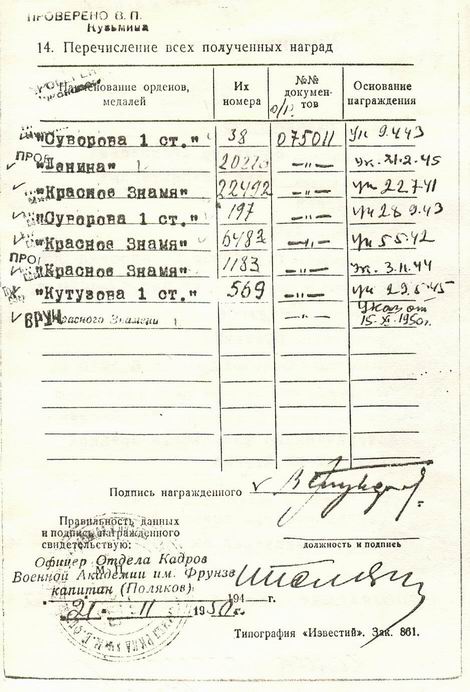 ПРОВЕРЕНО В. П.
Кузьмина
14. Перечисление всех полученных наград
Наименование орденов, медалей
Их номера
№№ документов
Основание награждения
"Суворова 1 ст." 38 075011 Ук 9.4.43
"Ленина" Ук. 21.2.45
"Красное Знамя" 22492 —"— Ук 22.7.41
"Суворова 1 ст." 197 —"— Ук 28.9.43
"Красное Знамя" —"— Ук 5.5.42
"Красное Знамя" 1183 —"— Ук. 3.11.44
"Кутузова 1 ст." 569 —"— Ук 29.5.45
Красного Знамени 1 —"— Указ от 15.XI.1950г.
Подпись награжденного
Правильность данных
и подпись награжденного
свидетельствую:
должность и подпись
Офицер Отдела Кадров
Военной Академии им. Фрунзе
капитан (Поляков)
21 11 1950г.
194 г.
Типография «Известий». Зак. 861.